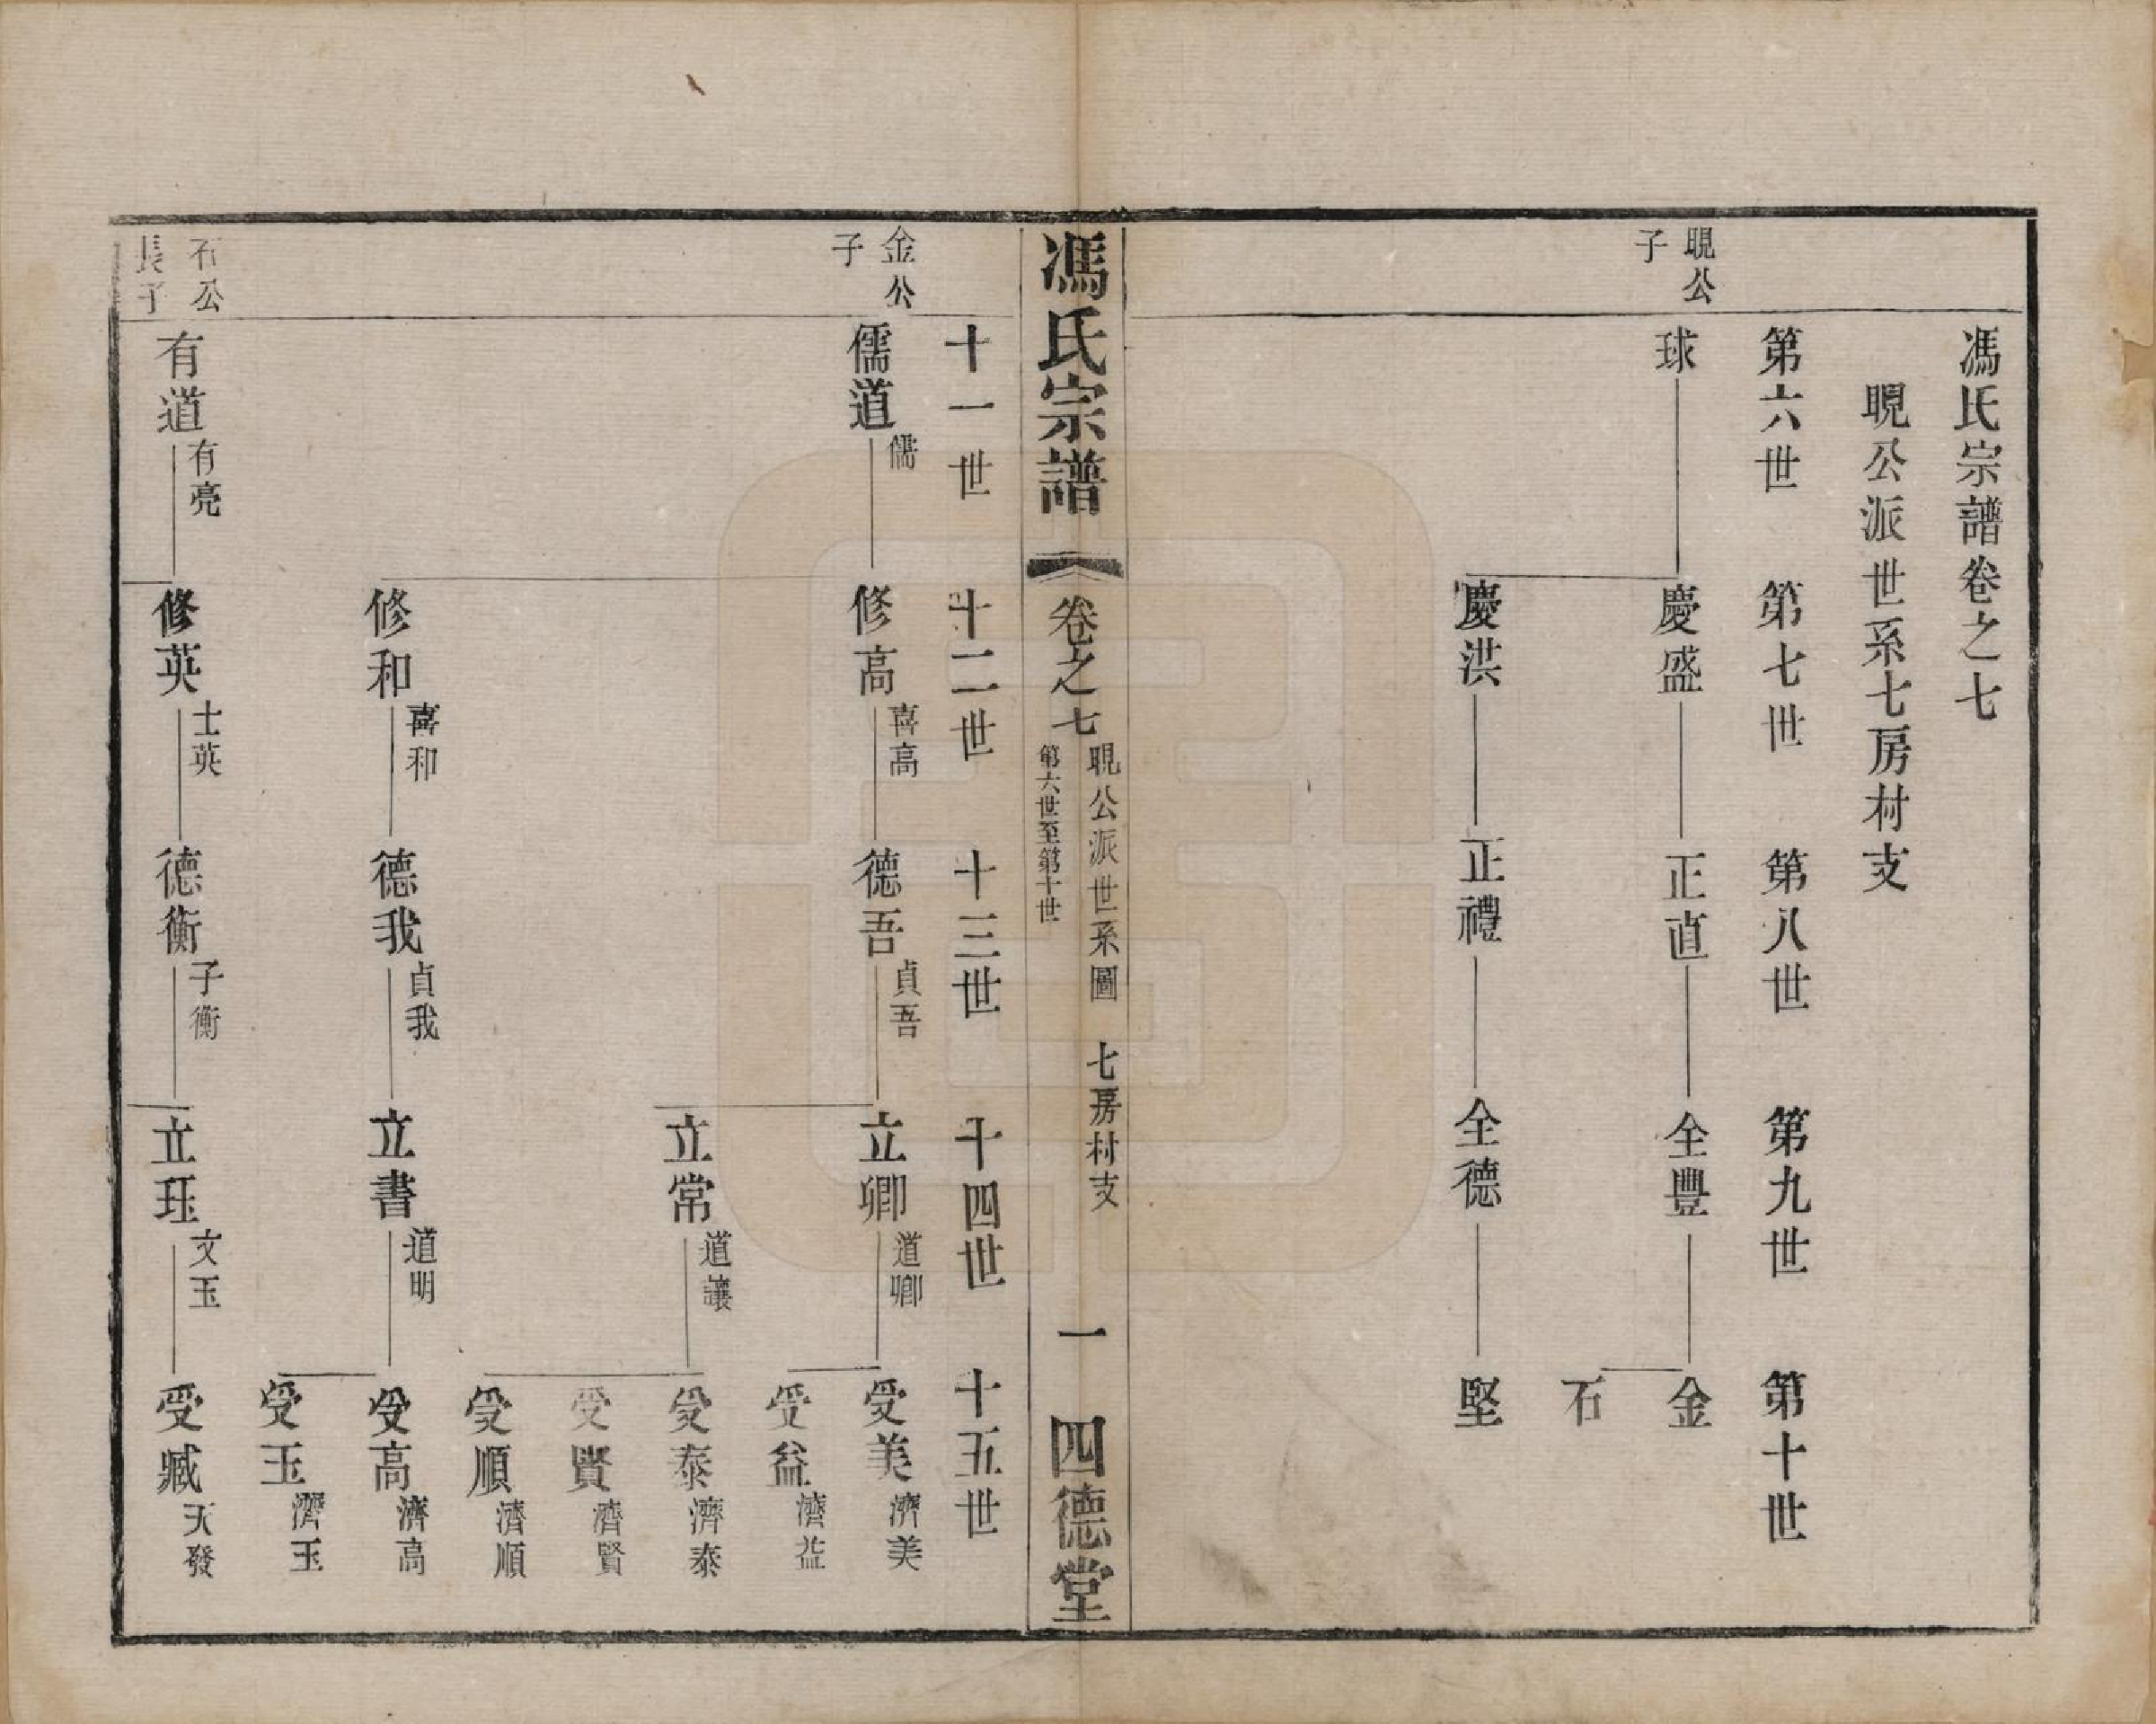 馮氏宗譜卷之七
睍公派世系七房村支
第六世 第七世 第八世 第九世 第十世
睍公
子
球 慶盛 正直 全豐 金
石
慶洪 正禮 全德 堅
馮氏宗譜 卷之七 睍公派世系圖 七房村支 第六世至第十世 一 四德堂
十一世 十二世 十三世 十四世 十五世
金公
子
儒道 儒 修高 喜高 德吾 貞吾 立卿 道卿 受美 濟美
受益 濟益
立常 道讓 受泰 濟泰
受賢 濟賢
受順 濟順
修和 喜和 德我 貞我 立書 道明 受高 濟高
受玉 濟玉
石公
長子
有道 有亮 修英 士英 德衡 子衡 立珏 文玉 受臧 天發